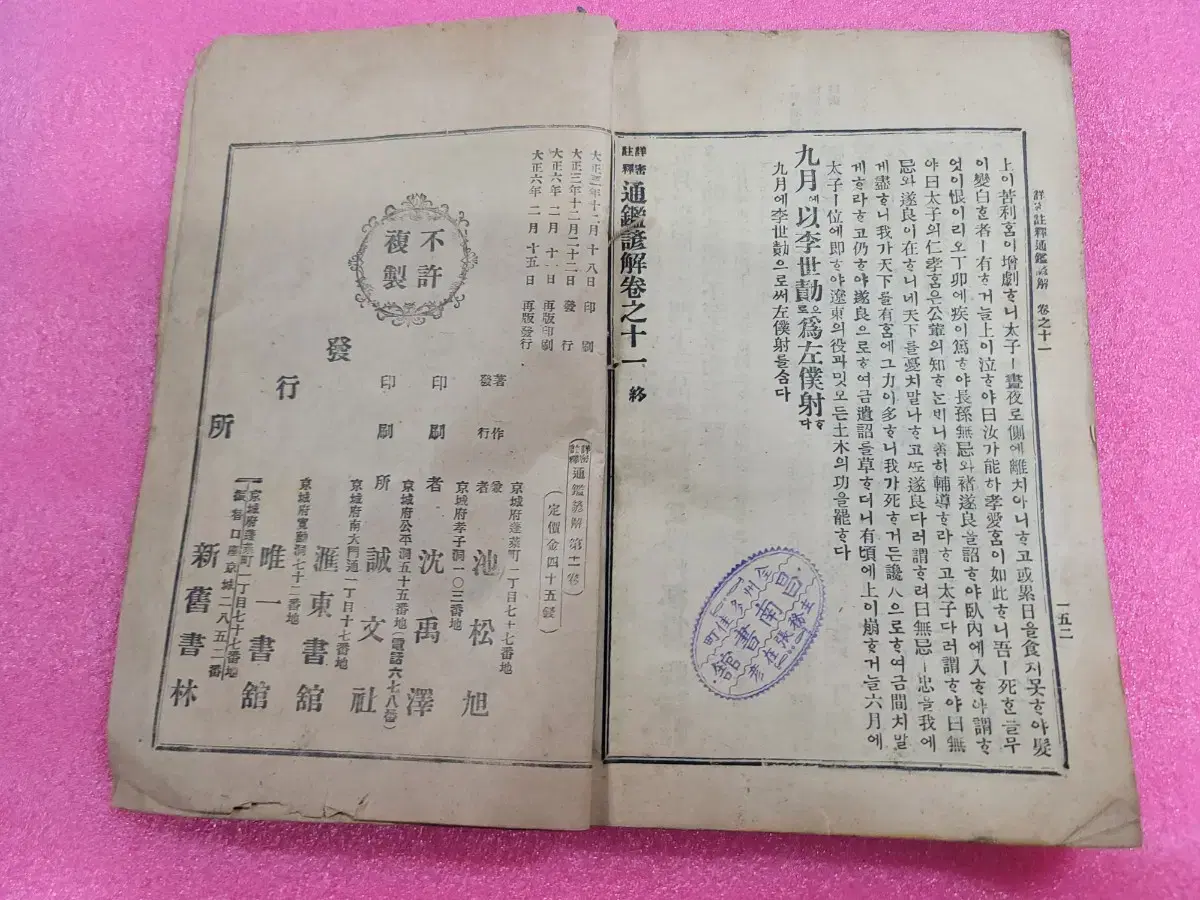 詳密註釋通鑑諺解 卷之十一
一五二
上이苦利ᄒᆞᆷ이增劇ᄒᆞ니太子ㅣ晝夜로側에離치아니ᄒᆞ고或累日을食지못ᄒᆞ야髮
이變白ᄒᆞᆫ者ㅣ有ᄒᆞ거ᄂᆞᆯ上이泣ᄒᆞ야曰汝가能히孝愛ᄒᆞᆷ이如此ᄒᆞ니吾ㅣ死ᄒᆞᆫ들무
엇이恨이리오丁卯에疾이篤ᄒᆞ야長孫無忌와褚遂良을詔ᄒᆞ야臥內에入ᄒᆞ야謂ᄒᆞ
야曰太子의仁孝ᄒᆞᆷ은公輩의知ᄒᆞᄂᆞᆫᄇᆡ니善히輔導ᄒᆞ라ᄒᆞ고太子다려謂ᄒᆞ야曰無
忌와遂良이在ᄒᆞ니네天下를憂치말나ᄒᆞ고ᄯᅩ遂良다려謂ᄒᆞ려曰無忌ㅣ忠을我에
게盡ᄒᆞ니我가天下를有ᄒᆞᆷ에그力이多ᄒᆞ니我가死ᄒᆞ거든讒人으로ᄒᆞ여금間치말
게ᄒᆞ라ᄒᆞ고仍ᄒᆞ야遂良으로ᄒᆞ여금遺詔를草ᄒᆞ더니有頃에上이崩ᄒᆞ거늘六月에
太子ㅣ位에即ᄒᆞ야遼東의役과밋모든土木의功을罷ᄒᆞ다
九月에以李世勣으로爲左僕射ᄒᆞ다
九月에李世勣으로써左僕射를삼다
詳密註釋通鑑諺解卷之十一 終
昌南書館
大正三年十二月十八日 印刷
大正三年十二月二十二日 發行
大正六年二月十一日 再版印刷
大正六年二月十五日 再版發行
不許複製
詳密註釋通鑑諺解 第十一卷
(定價金四十五錢)
京城府蓬萊町一丁目七十七番地
著作兼發行者 池松旭
京城府孝子洞一〇三番地
印刷者 沈禹澤
京城府公平洞五十五番地(電話六七八番)
印刷所 誠文社
京城府南大門通一丁目十七番地
發行所
滙東書舘
京城府寬勳洞七十二番地
唯一書舘
京城府蓬萊町一丁目七十七番地
振替口座京城二八五二番
新舊書林